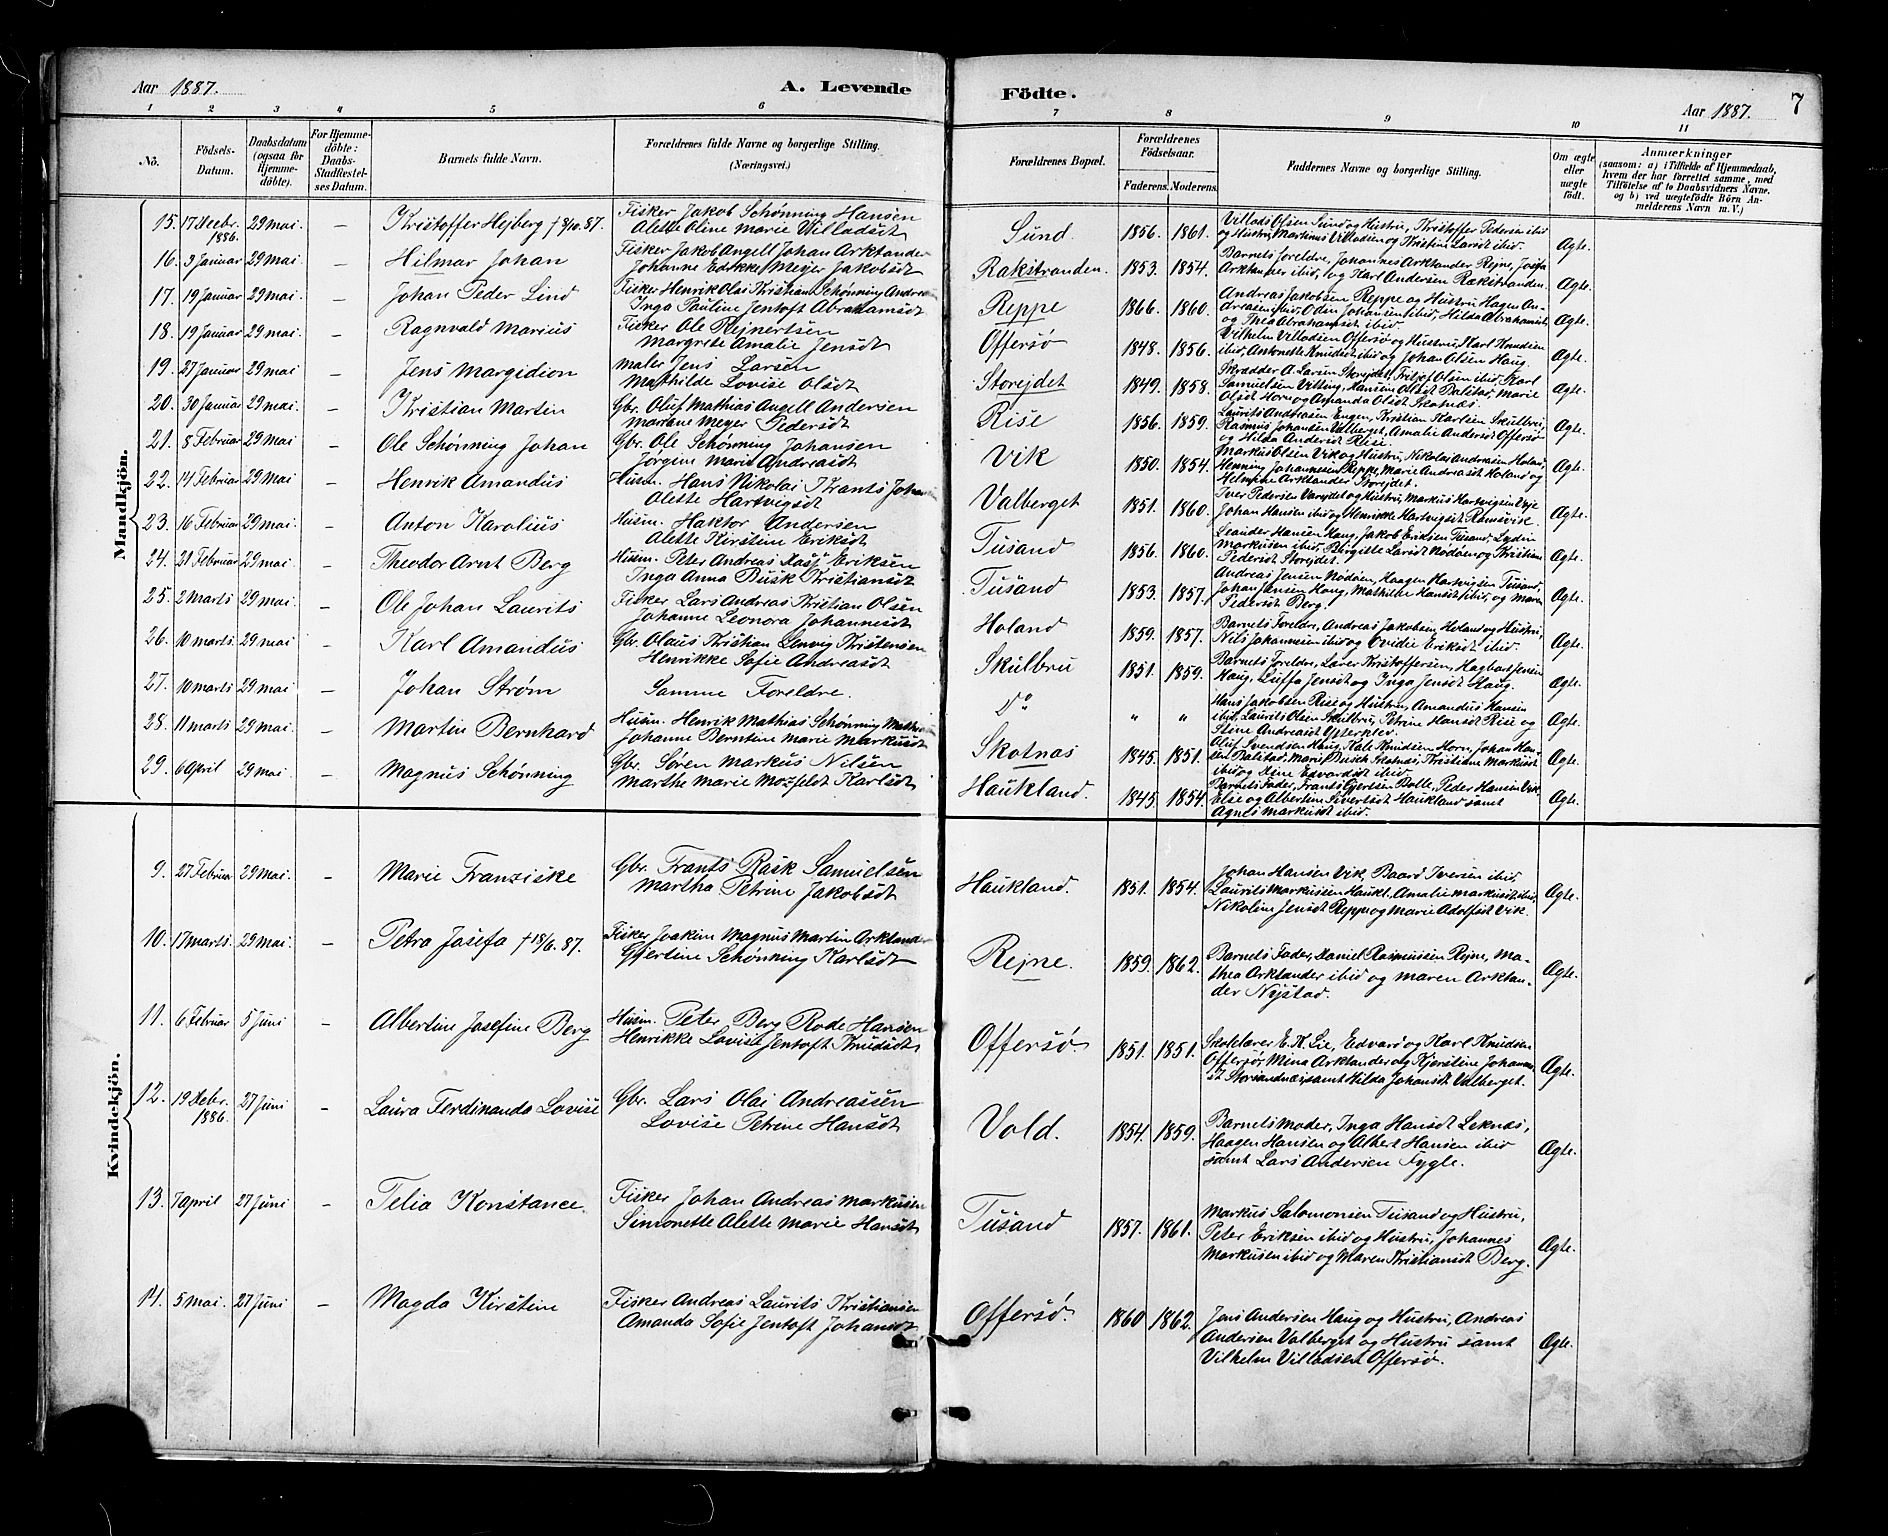 Aar 1887. A. Levende
1 2 3 4 5 6
No. Födsels-Datum. Daabsdatum (ogsaa for Hjemme-döbte). For Hjemme-döbte: Daabs-Stadfæstel-ses Datum. Barnets fulde Navn. Forældrenes fulde Navne og borgerlige Stilling. (Næringsvei.)
Mandkjön.
15. 17 Decbr. 1886. 29 Mai. – Kristoffer Hejberg † 3/10. 87. Fisker Jakob Schønning Hansen
Alette Oline Marie Villadsdt
16. 3 Januar 29 Mai – Hilmar Johan Fisker Jakob Angell Johan Arktander
Johanne Edikke Meyer Jakobsdt
17. 19 Januar 29 Mai – Johan Peder Lind Fisker Henrik Olai Kristian Schønning Andrea
Inga Pauline Jentoft Abrahamsdt
18. 19 Januar 29 Mai – Ragnvald Marius Fisker Ole Rejnertsen
Margrete Amalie Jensdt
19. 27 Januar 29 Mai – Jens Margidion Maler Jens Larsen
Mathilde Lovise Olsdt
20. 30 Januar 29 Mai. – Kristian Martin Gbr. Oluf Mathias Angell Andersen
Mariane Meyer Pedersdt
21. 8 Februar 29 Mai – Ole Schønning Johan Gbr. Ole Schønning Johansen
Jørgine Marie Andreasdt
22. 14 Februar 29 Mai – Henrik Amandus Husm. Hans Nikolai Krants Johan
Alette Hartvigsdt
23. 16 Februar 29 Mai. – Anton Karolius Husm. Haktor Andersen
Alette Kirstine Eriksdt
24. 21 Februar 29 Mai. – Theodor Arnt Berg Husm. Peter Andreas Eriksen
Inga Anna Busk Kristiansdt
25. 2 Marts 29 Mai. – Ole Johan Laurits Fisker Lars Andreas Kristian Olsen
Johanne Leonora Johannesdt
26. 10 Marts. 29 Mai – Karl Amandus Gbr. Olaus Kristian Lenvig Kristensen
Henrikke Sofie Andreasdt
27. 10 Marts 29 Mai. – Johan Strøm Samme Foreldre.
28. 11 Marts 29 Mai. – Martin Bernhard Husm. Henrik Mathias Schønning Mathis
Johanne Berntine Marie Markusdt
29. 6 April 29 Mai. – Magnus Schønning Gbr. Søren Markus Nilsen
Marthe Marie Mozfeldt Karlsdt
Kvindekjön.
9. 27 Februar 29 Mai. – Marie Franziske Gbr. Frants Rask Samuelsen
Martha Petrine Jakobsdt
10. 17 Marts. 29 Mai. – Petra Josefa † 18/6. 87. Fisker Joakim Magnus Martin Arktander
Gjertine Schønning Karlsdt
11. 6 Februar 5 Juni – Albertine Josefine Berg Husm. Peter Berg Rode Hansen
Henrikke Lovise Jentoft Knudsdt
12. 19 Debr. 1886. 27 Juni – Laura Ferdinanda Lovise Gbr. Lars Olai Andreassen
Lovise Petrine Hansdt
13. 7 April 27 Juni – Telia Konstance. Fisker Johan Andreas Markusen
Simonette Alette Marie Hansdt
14. 5 Mai. 27 Juni – Magda Kirstine Fisker Andreas Laurits Kristiansen
Amanda Sofie Jentoft Johansdt
Födte. Aar 1887. 7
7 8 9 10 11
Forældrenes Bopæl. Forældrenes Födselsaar. Faderens. Moderens. Faddernes Navne og borgerlige Stilling. Om ægte eller uægte födt. Anmærkninger
(saasom: a) i Tilfælde af Hjemmedaab, hvem der har forrettet samme, med Tilföielse af to Daabsvidners Navne, og b) ved uægtefödte Börn Anmelderens Navn m. V.)
Sund. 1856. 1861. Villads Olsen Sund og Hustru, Kristoffer Pedersen ibid
og Hustru, Markus Villadsen og Kristine Larsdt ibid. Ægte.
Rakstranden. 1853. 1854. Barnets foreldre, Johannes Arktander Rejne, Josefa
Arktander ibid, og Karl Andersen Rakstranden. Ægte.
Reppe 1866. 1860. Andreas Jakobsen Reppe og Hustru, Hagen An-
dreasen ibid, Odin Johansen ibid, Hilda Abrahamsdt
og Thea Abrahamsdt ibid. Ægte.
Offersø 1848. 1856. Vilhelm Villadsen Offersø og Hustru, Karl Knudsen
ibid, Antonette Knudsdt ibid og Johan Olsen Haug. Ægte.
Storejdet 1849. 1858. Skrædder A. Larsen Storejdet, Fritjof Olsen ibid, Karl
Samuelsen Vitting, Hansine Olsdt Balstad, Marie
Olsdt Horn og Amanda Olsdt Skotnæs. Ægte.
Rise 1856. 1859. Laurits Andreasen Engen, Kristian Karlsen Skulbru,
Rasmus Johansen Valberget, Amalie Andersdt Offersø
og Hilda Andersdt Rise. Ægte.
Vik 1850. 1854. Markus Olsen Vik og Hustru, Nikolai Andreasen Holand,
Henning Johannesen Reppe, Marie Andreasdt Holand og
Helmine Arktander Storejdet. Ægte.
Valberget 1851. 1860. Iver Pedersen Varejdet og Hustru, Markus Hartvigsen Unje
Johan Hansen ibid og Henrikke Hartvigsdt Ramsvise. Ægte.
Tusand 1856. 1860. Leander Hansen Haug, Jakob Eriksen Tusand, Lydin
Markusen ibid, Birgitte Larsdt Nodøen og Kristian
Pedersdt Storejdet. Ægte.
Tusand 1853. 1857. Andreas Jensen Nodøen, Haagen Hartvigsen Tusand,
Johan Jensen Haug, Mathilde Hansdt ibid, og Maren
Pedersdt Berg. Ægte.
Holand 1859. 1857. Barnets Foreldre, Andreas Jakobsen Holand og Hustru,
Nils Johannesen ibid og Ovidie Eriksdt ibid. Ægte.
Skulbru 1851. 1859. Barnets Foreldre, Lorer Kristoffersen, Hagbart Jensen
Haug, Luffa Jensdt og Inga Jensdt Haug. Ægte.
Do " " Hans Jakobsen Rise og Hustru, Amandus Hansen
ibid, Laurits Olsen Skulbru, Petrine Hansdt Rise og
Stine Andreasdt Ytterklev. Ægte.
Skotnas 1845. 1851. Oluf Svendsen Haug, Kale Knudsen Horn, Johan Han-
sen Balstad, Marie Busch Skotnæs, Kristiane Markusdt
ibid og Edvardsdt ibid. Ægte.
Haukland. 1845. 1854. Barnets Fader, Frants Gjertsen Bolle, Peder Hansen Vik,
Elie og Albertine Sivertsdt Haukland samt
Agnes Markusdt ibid. Ægte.
Haukland. 1851. 1854. Johan Hansen Vik, Baard Iversen ibid
Laurits Markussen Haukl., Amalie Markusdt ibid,
Nikoline Jensdt Reppe og Marie Adolfsdt Vik. Ægte.
Rejne. 1859. 1862. Barnets Fader, Daniel Rasmussen Rejne, Ma-
thea Arktander ibid og Maren Arktan-
der Nystad. Ægte.
Offersø. 1851. 1851. Skolelærer E. K. Lie, Edvard og Karl Knudsen
Offersø, Mina Arktander og Kjerstine Johannes-
dt Storsandnæs samt Hilda Johansdt Valberget. Ægte.
Vold. 1854. 1859. Barnets Moder, Inga Hansdt Leknæs,
Haagen Hansen og Albert Hansen ibid
samt Lars Andersen Fygle. Ægte.
Tusand 1857. 1861. Markus Salomonsen Tusand og Hustru,
Peter Eriksen ibid og Hustru, Johannes
Markusen ibid og Maren Kristiansdt Berg. Ægte.
Offersø. 1860 1862. Jens Andersen Haug og Hustru, Andreas
Andersen Valberget og Hustru samt
Vilhelm Villadsen Offersø. Ægte.